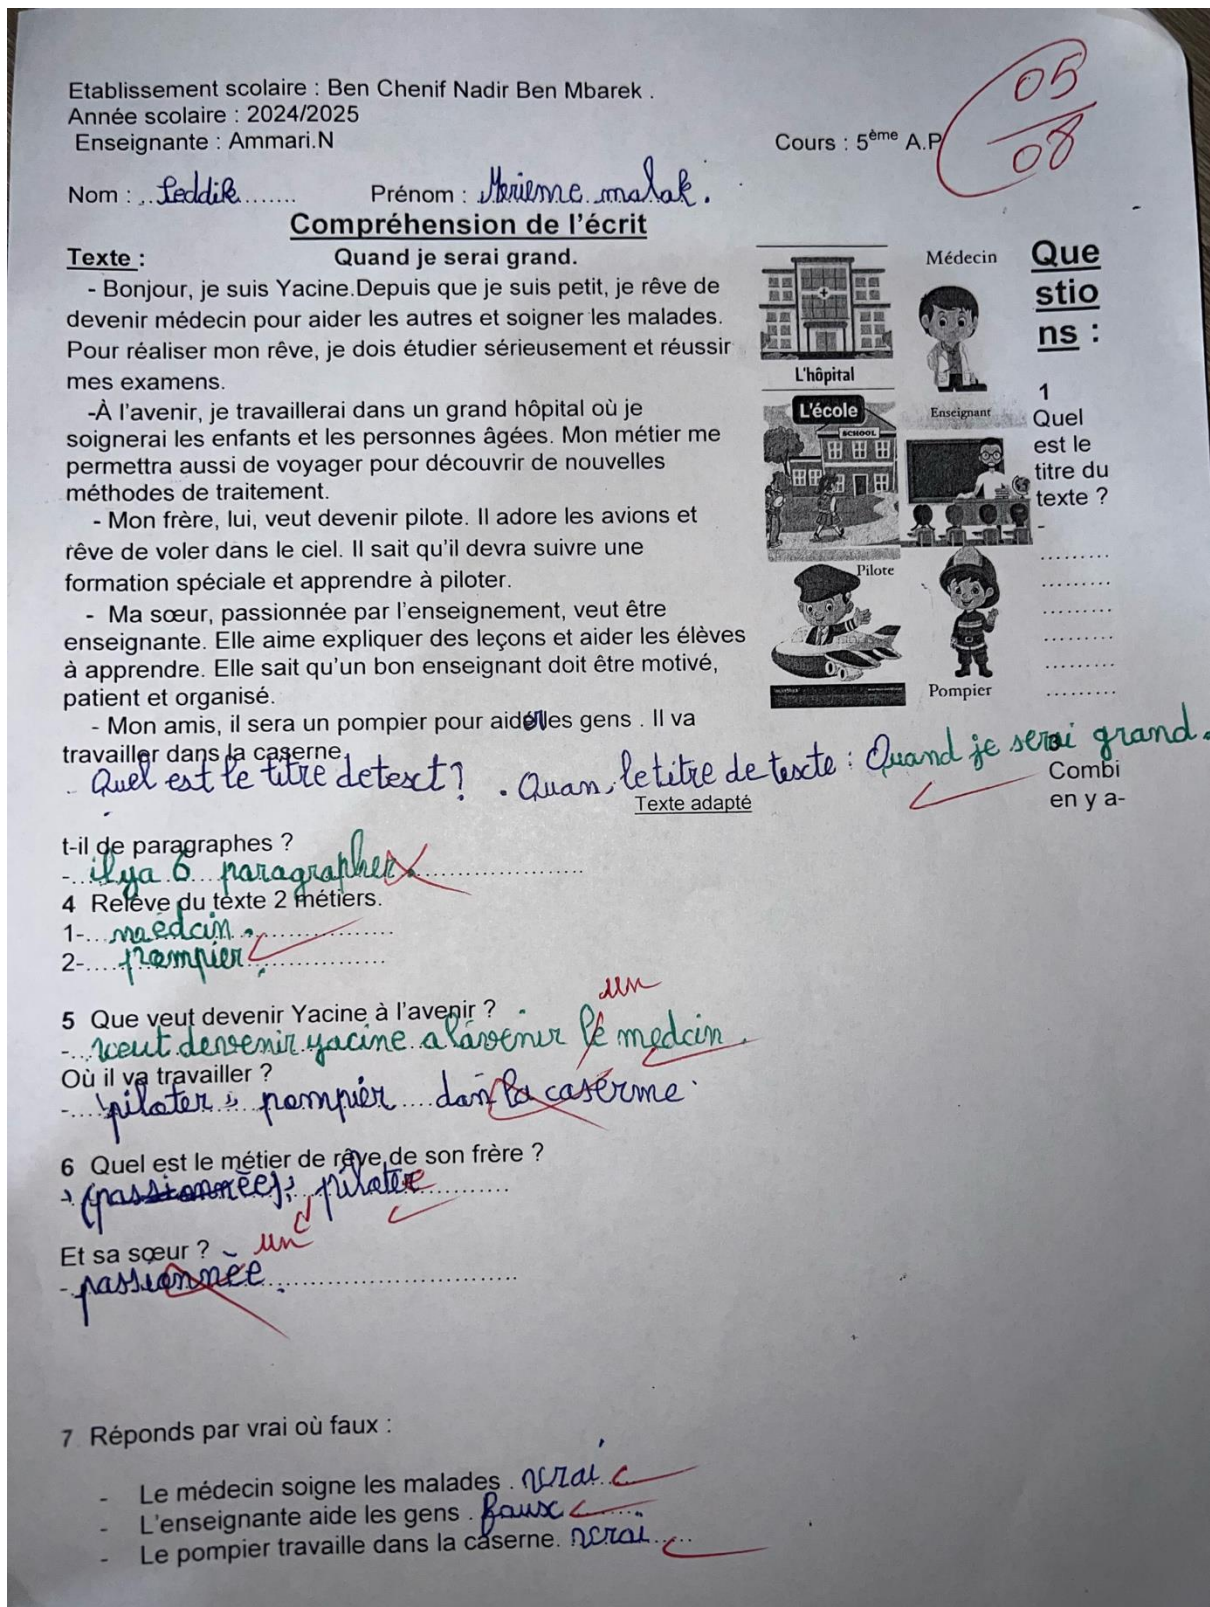 Etablissement scolaire : Ben Chenif Nadir Ben Mbarek .
Année scolaire : 2024/2025
Enseignante : Ammari.N
Cours : 5ème A.P
05
08
Nom : .. Seddik.......
Prénom : Merieme malak.
Compréhension de l'écrit
Texte :
Quand je serai grand.
- Bonjour, je suis Yacine.Depuis que je suis petit, je rêve de
devenir médecin pour aider les autres et soigner les malades.
Pour réaliser mon rêve, je dois étudier sérieusement et réussir
mes examens.
-À l'avenir, je travaillerai dans un grand hôpital où je
soignerai les enfants et les personnes âgées. Mon métier me
permettra aussi de voyager pour découvrir de nouvelles
méthodes de traitement.
- Mon frère, lui, veut devenir pilote. Il adore les avions et
rêve de voler dans le ciel. Il sait qu'il devra suivre une
formation spéciale et apprendre à piloter.
- Ma sœur, passionnée par l'enseignement, veut être
enseignante. Elle aime expliquer des leçons et aider les élèves
à apprendre. Elle sait qu'un bon enseignant doit être motivé,
patient et organisé.
- Mon amis, il sera un pompier pour aider les gens . Il va
travailler dans la caserne.
L'hôpital
Médecin
L'école
SCHOOL
Enseignant
Pilote
Pompier
Que
stio
ns :
1
Quel
est le
titre du
texte ?
-
..........
..........
..........
..........
..........
..........
Quel est le titre de texct ? . Quan, le titre de texcte : Quand je serai grand.
Texte adapté
3
Combi
en y a-
t-il de paragraphes ?
-...il ya 6 paragraphes.
4 Relève du texte 2 métiers.
1-... médcin.
2-.... pompier.
5 Que veut devenir Yacine à l'avenir ?
un
-... veut devenir yacine a l'avenir le medcin.
Où il va travailler ?
-.... piloter pompier dan la caserme.
6 Quel est le métier de rêve de son frère ?
(passionnée), pilote
Et sa sœur ?
un
- passionnée.
7 Réponds par vrai où faux :
- Le médecin soigne les malades . vrai
- L'enseignante aide les gens . faux
- Le pompier travaille dans la caserne. vrai